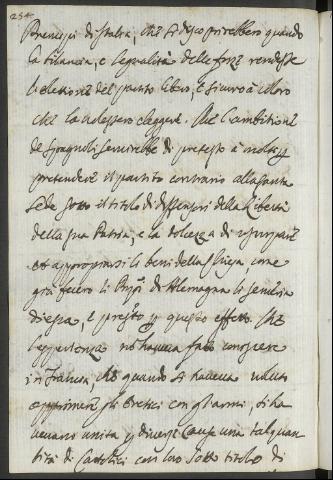 254
Prencipi di Italia, che si discoprirebbero quando
la bilancia, e l'egualità delle forze rendesse
la elettione del partito libero, e sicuro à coloro
che la volessero eleggere. Che l'ambitione
de Spagnoli servirebbe di pretesto à molti p
prendere il partito contrario alla santa
sede sotto il titolo di diffensori della libertà
della sua Patria, e la dolcezza di usurpare
et appropriarsi li beni della Chiesa, come
già fecero li in Alemagna
di essa, e presto p questo effetto. Che
l'esperienza n haveva fatto conoscere
in Francia, che quando si haveva voluto
opprimere gli Eretici con gl'armi, si ha
vevano unita p diverse Cause una tal quan
tità di Cattolici con loro sotto titolo di